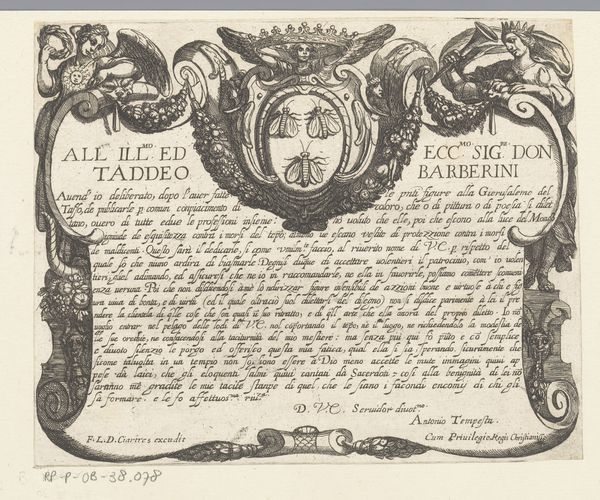 ALL' ILL.MO ED ECC.MO SIG.RE DON
TADDEO BARBERINI
Auend' io deliberato, dopo l'auer fatte le pnti figure alla Gierusaleme del
Tasso, de publicarle p comun compiacimento di coloro, che o di pittura o di poesia si dilet
tano, ouero di tutte edue le professioni insieme: uoluto che elle, poi che escono alla luce del Mondo
di esquisitezza contra i morsi del tepo, almeno ue escano uestite di protezzione contra i morsi
de maldicenti. Questo sarà il dedicarle, si come faccio, al riuerito nome di V.E. p rispetto del
quale so che niuno ardirà di biasmarle. Degnisi dunque di accettare uolentieri il patrocinio, com' io uolen
tieri, ne io in raccomandarle, ne ella in fauorirle, possiamo commettere sconueni
enza ueruna. Poi che non a chi e fi
gura uiua di bontà, e di uirtù, del disegno) non si disdice parimente à lei il pre
ndere la clientela di quelle cose che son quasi il suo ritratto, e di quell' arte che ella onora del proprio diletto. Io no
uoglio entrar nel pelago delle lodi di V.E. nol cofortando il tepo, ne il luogo, ne richiedendolo la modestia de
le sue orecchie, ne confacendosi alla taciturnità del mio mestiero: ma senza piu qui fo puto e cō semplice
e diuoto silenzio le porgo ed offerisco questa mia fatica, qual ella si sia sperando, sicuramente che
sicome taluolta in un tempio non sogliono essere à Dio meno accette le mute immagini quiui
da laici, che gli eloquenti salmi quiui cantati da Sacerdoti: cosi alla benignità di lei no
saranno gradite le mie tacite stampe di quel, che le siano i facondi encomij di chi gli
sà formare. e le fo affettuos.ma
D. V.E. Seruidor diuot.mo
Antonio Tempesta.
F.L.D. Ciartres excudit Cum Priuilegio Regis Christianiss.
RP-P-OB-38.078